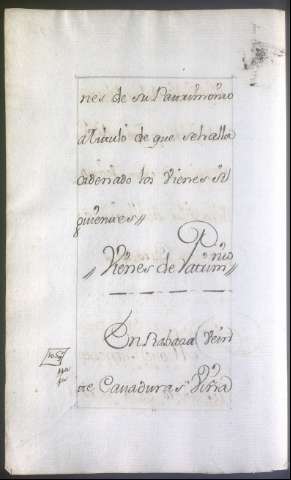 nes de su Patrimonio
a titulo de que se halla
ordenado los Vienes si
guientes //
// Vienes de Patrim.nio //
En Rabara Vein
te Cavaduras Viña